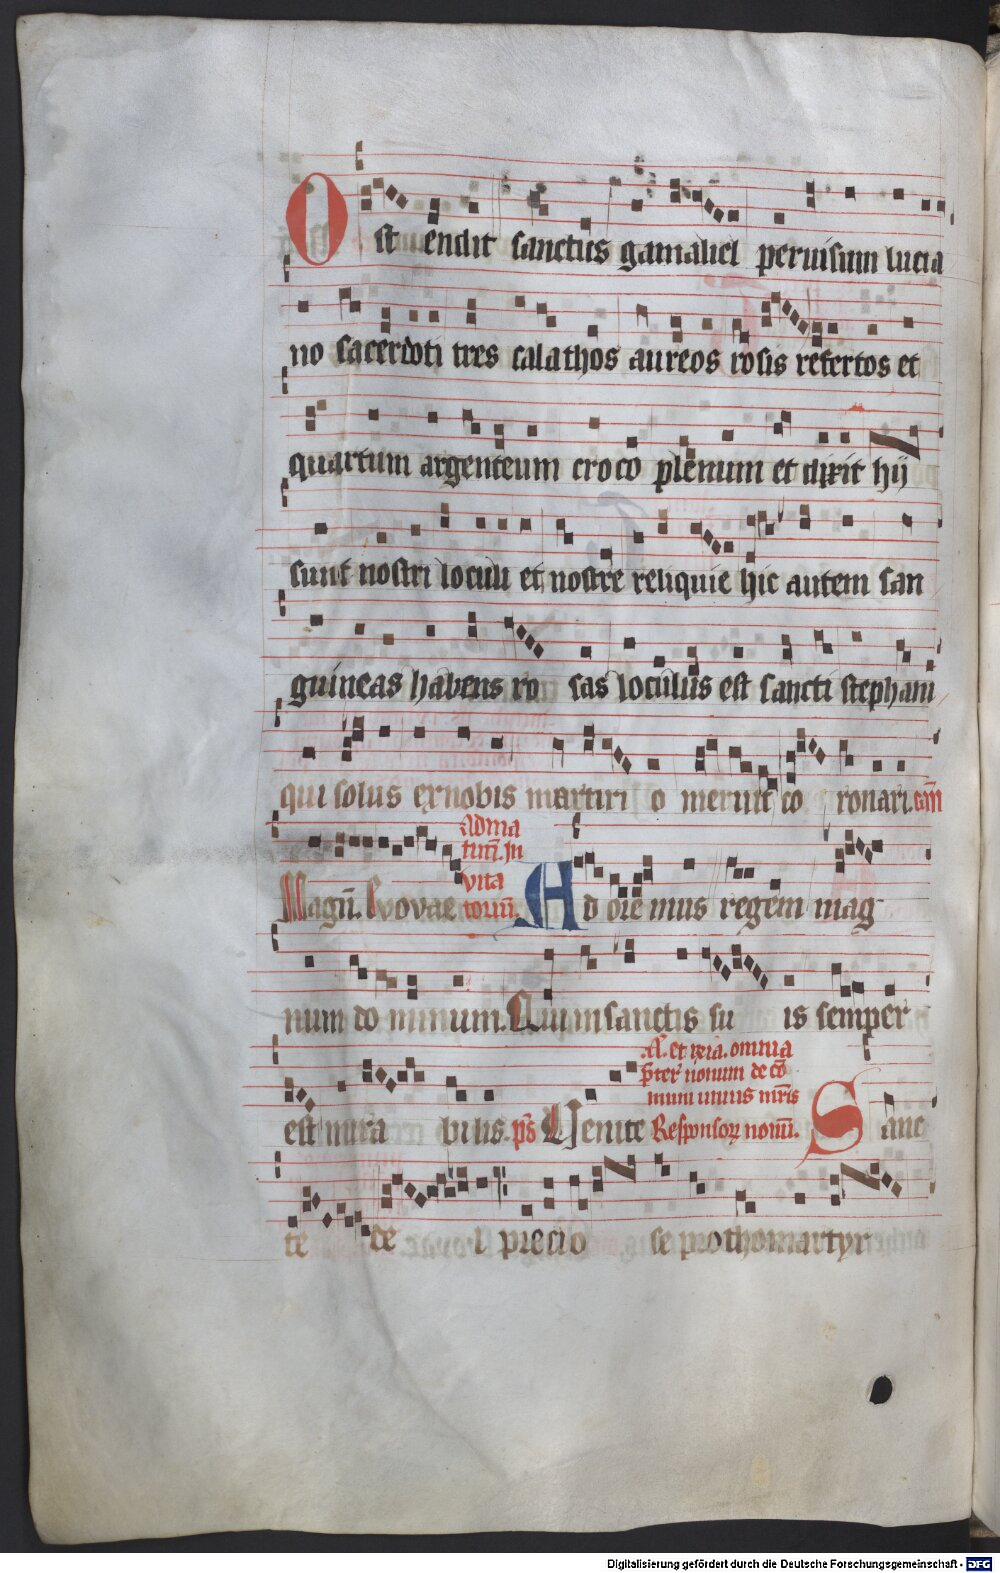 Ost endit sanctus gamaliel per uisum lucia
no sacerdoti tres calathos aureos rosis refertos et
quartum argenteum croco plenum et dixit hij
sunt nostri loculi et nostre reliquie hic autem san
guineas habens ro sas loculus est sancti stephani
qui solus ex nobis martiri o meruit co ronari. cañ
Adma
tuñ. In
vita
toriũ.
Magñ. Evovae Ad ore mus regem mag
num do minum. Qui in sanctis su is semper
.A. et reła. omnia
p̃ter nonum de cõ
muni unius mr̃is
Responsoꝝ nonũ.
est mira bilis. p̃s Uenite Sanc
te de i precio se prothomartyr
Digitalisierung gefördert durch die Deutsche Forschungsgemeinschaft - DFG